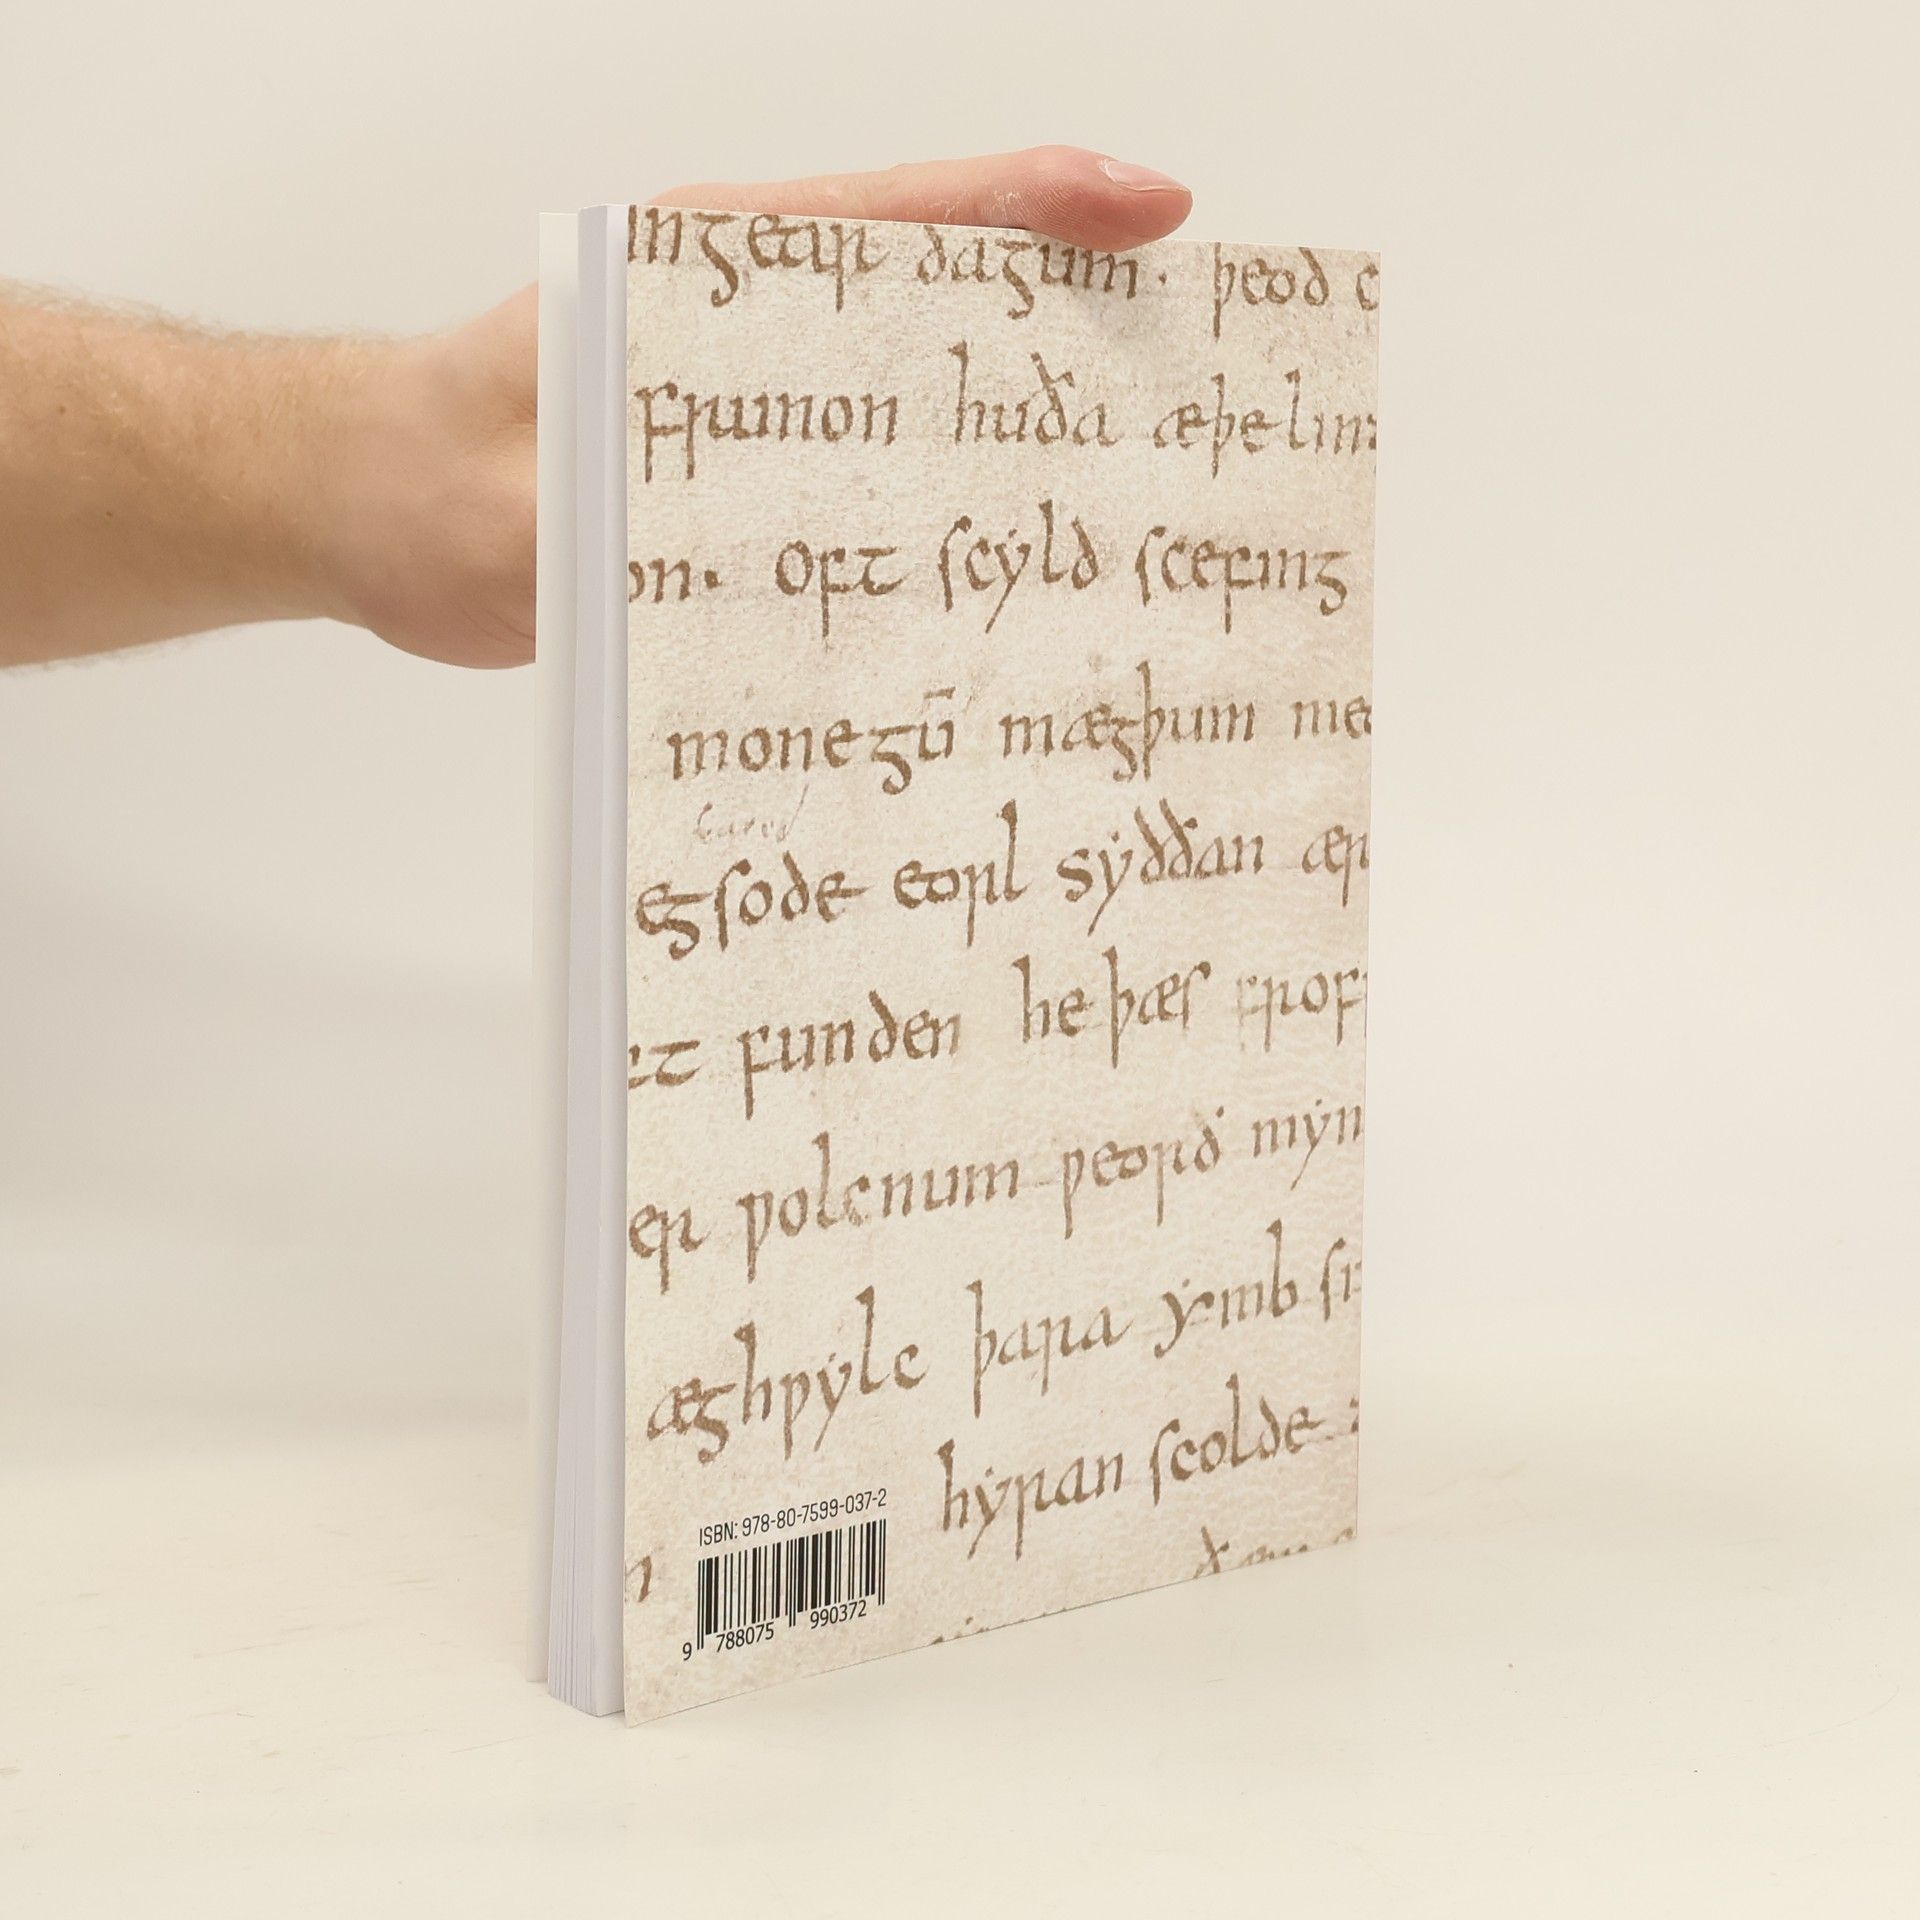 in gear dagum. þeod c
frunon huða æþelinȝ
on. Oft scyld scefing
monegū mægþum me
egsode eorl syððan ær
funden he þæs frofr
er ƿolcnum ƿeorð myn
æghƿylc þara ymb sit
hyran scolde
ISBN: 978-80-7599-037-2
9 788075 990372